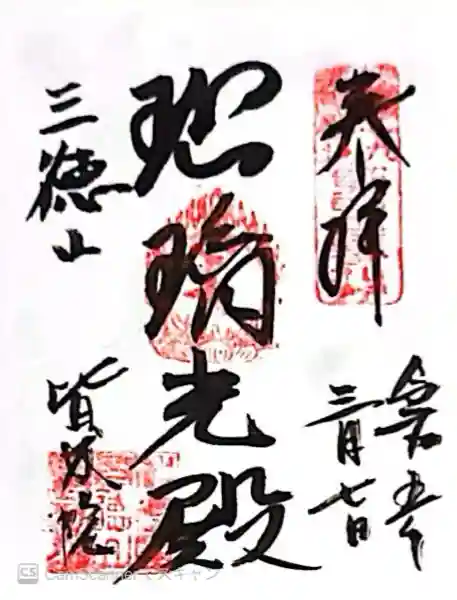 奉拝
令和五年
三月七日
瑠璃光殿
三徳山
皆成院
CS CamScanner でスキャン